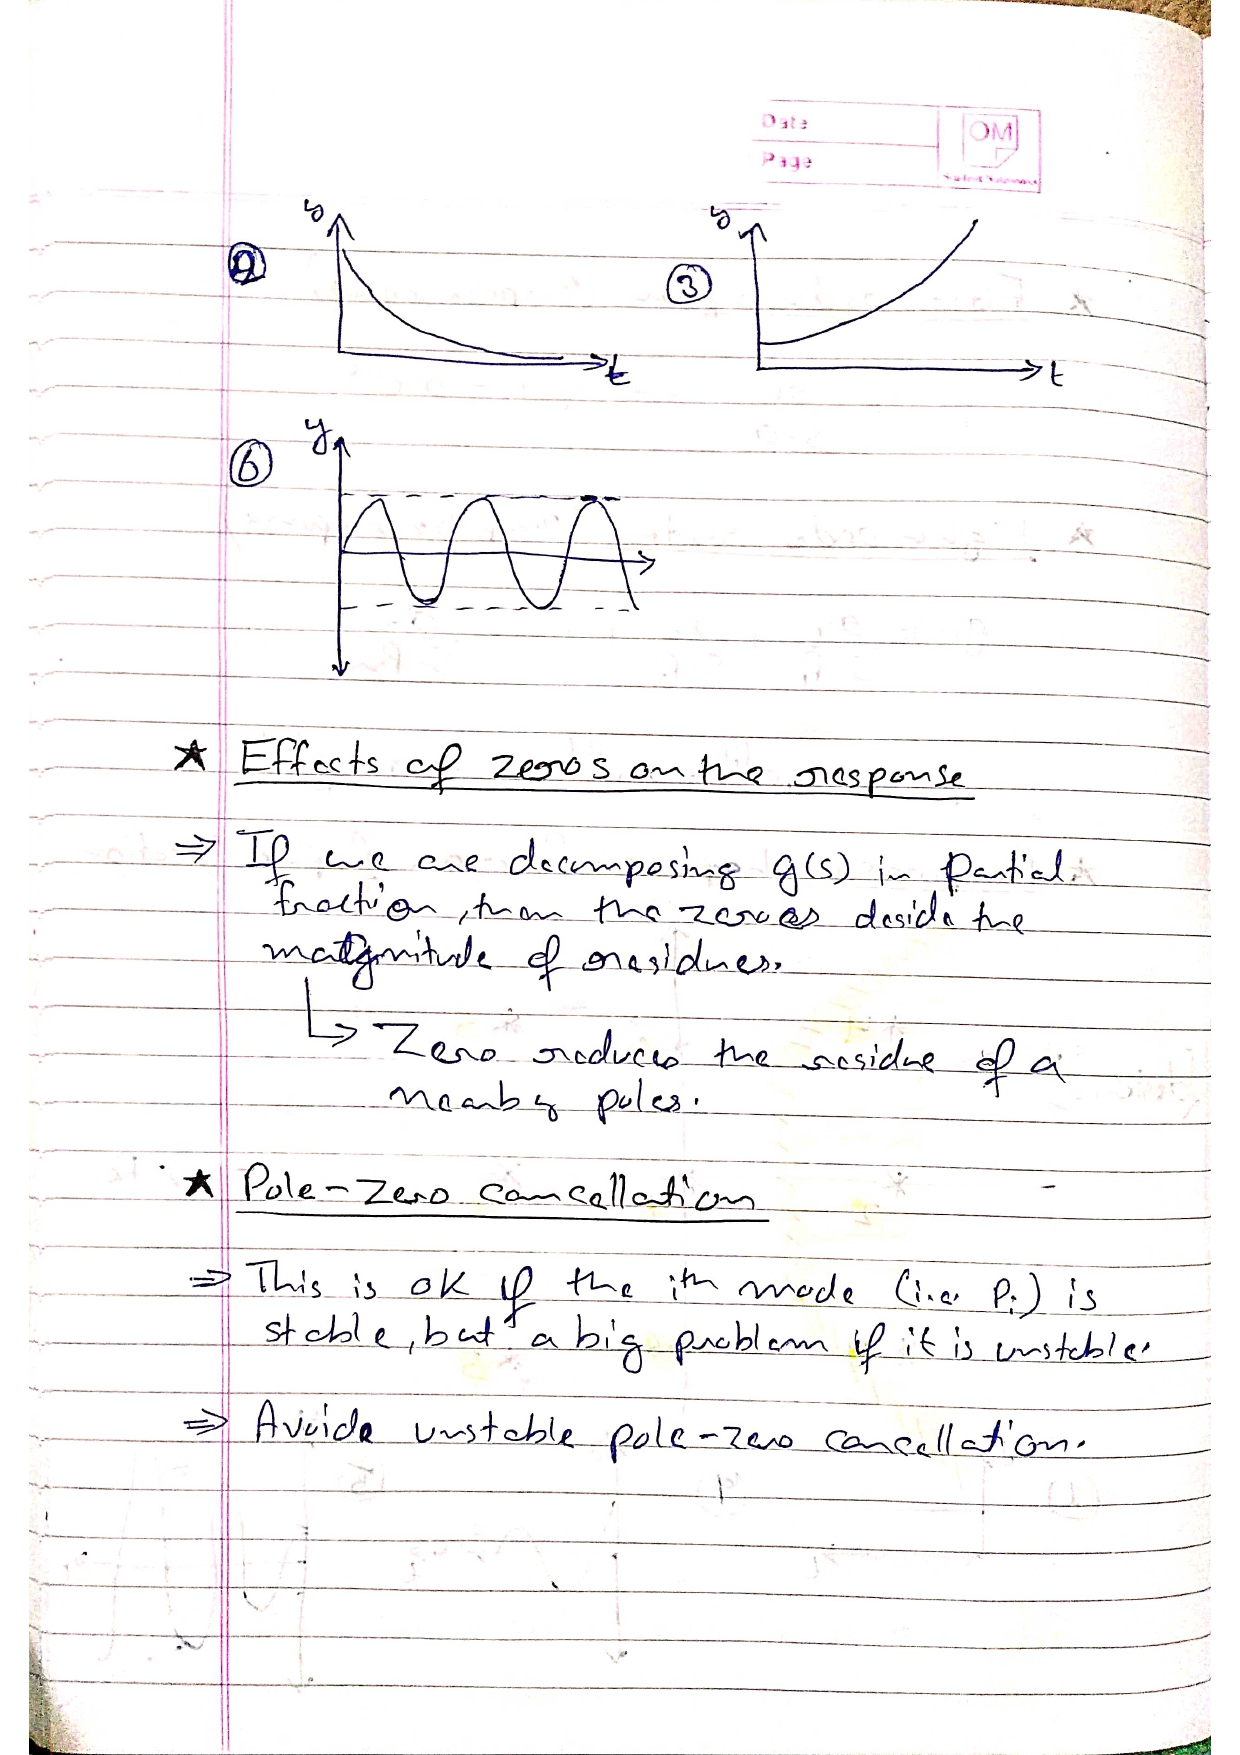 Date
OM
Page
y
y
②
③
t
t
y
⑥
★ Effects of zeros on the response
⇒ If we are decomposing g(s) in Partial
fraction, then the zeroes deside the
magnitude of residues.
↳ Zero reduces the residue of a
nearby poles.
★ Pole-Zero cancellation
⇒ This is ok if the ith mode (i.e. Pi) is
stable, but a big problem if it is unstable.
⇒ Avoide unstable pole-zero cancellation.